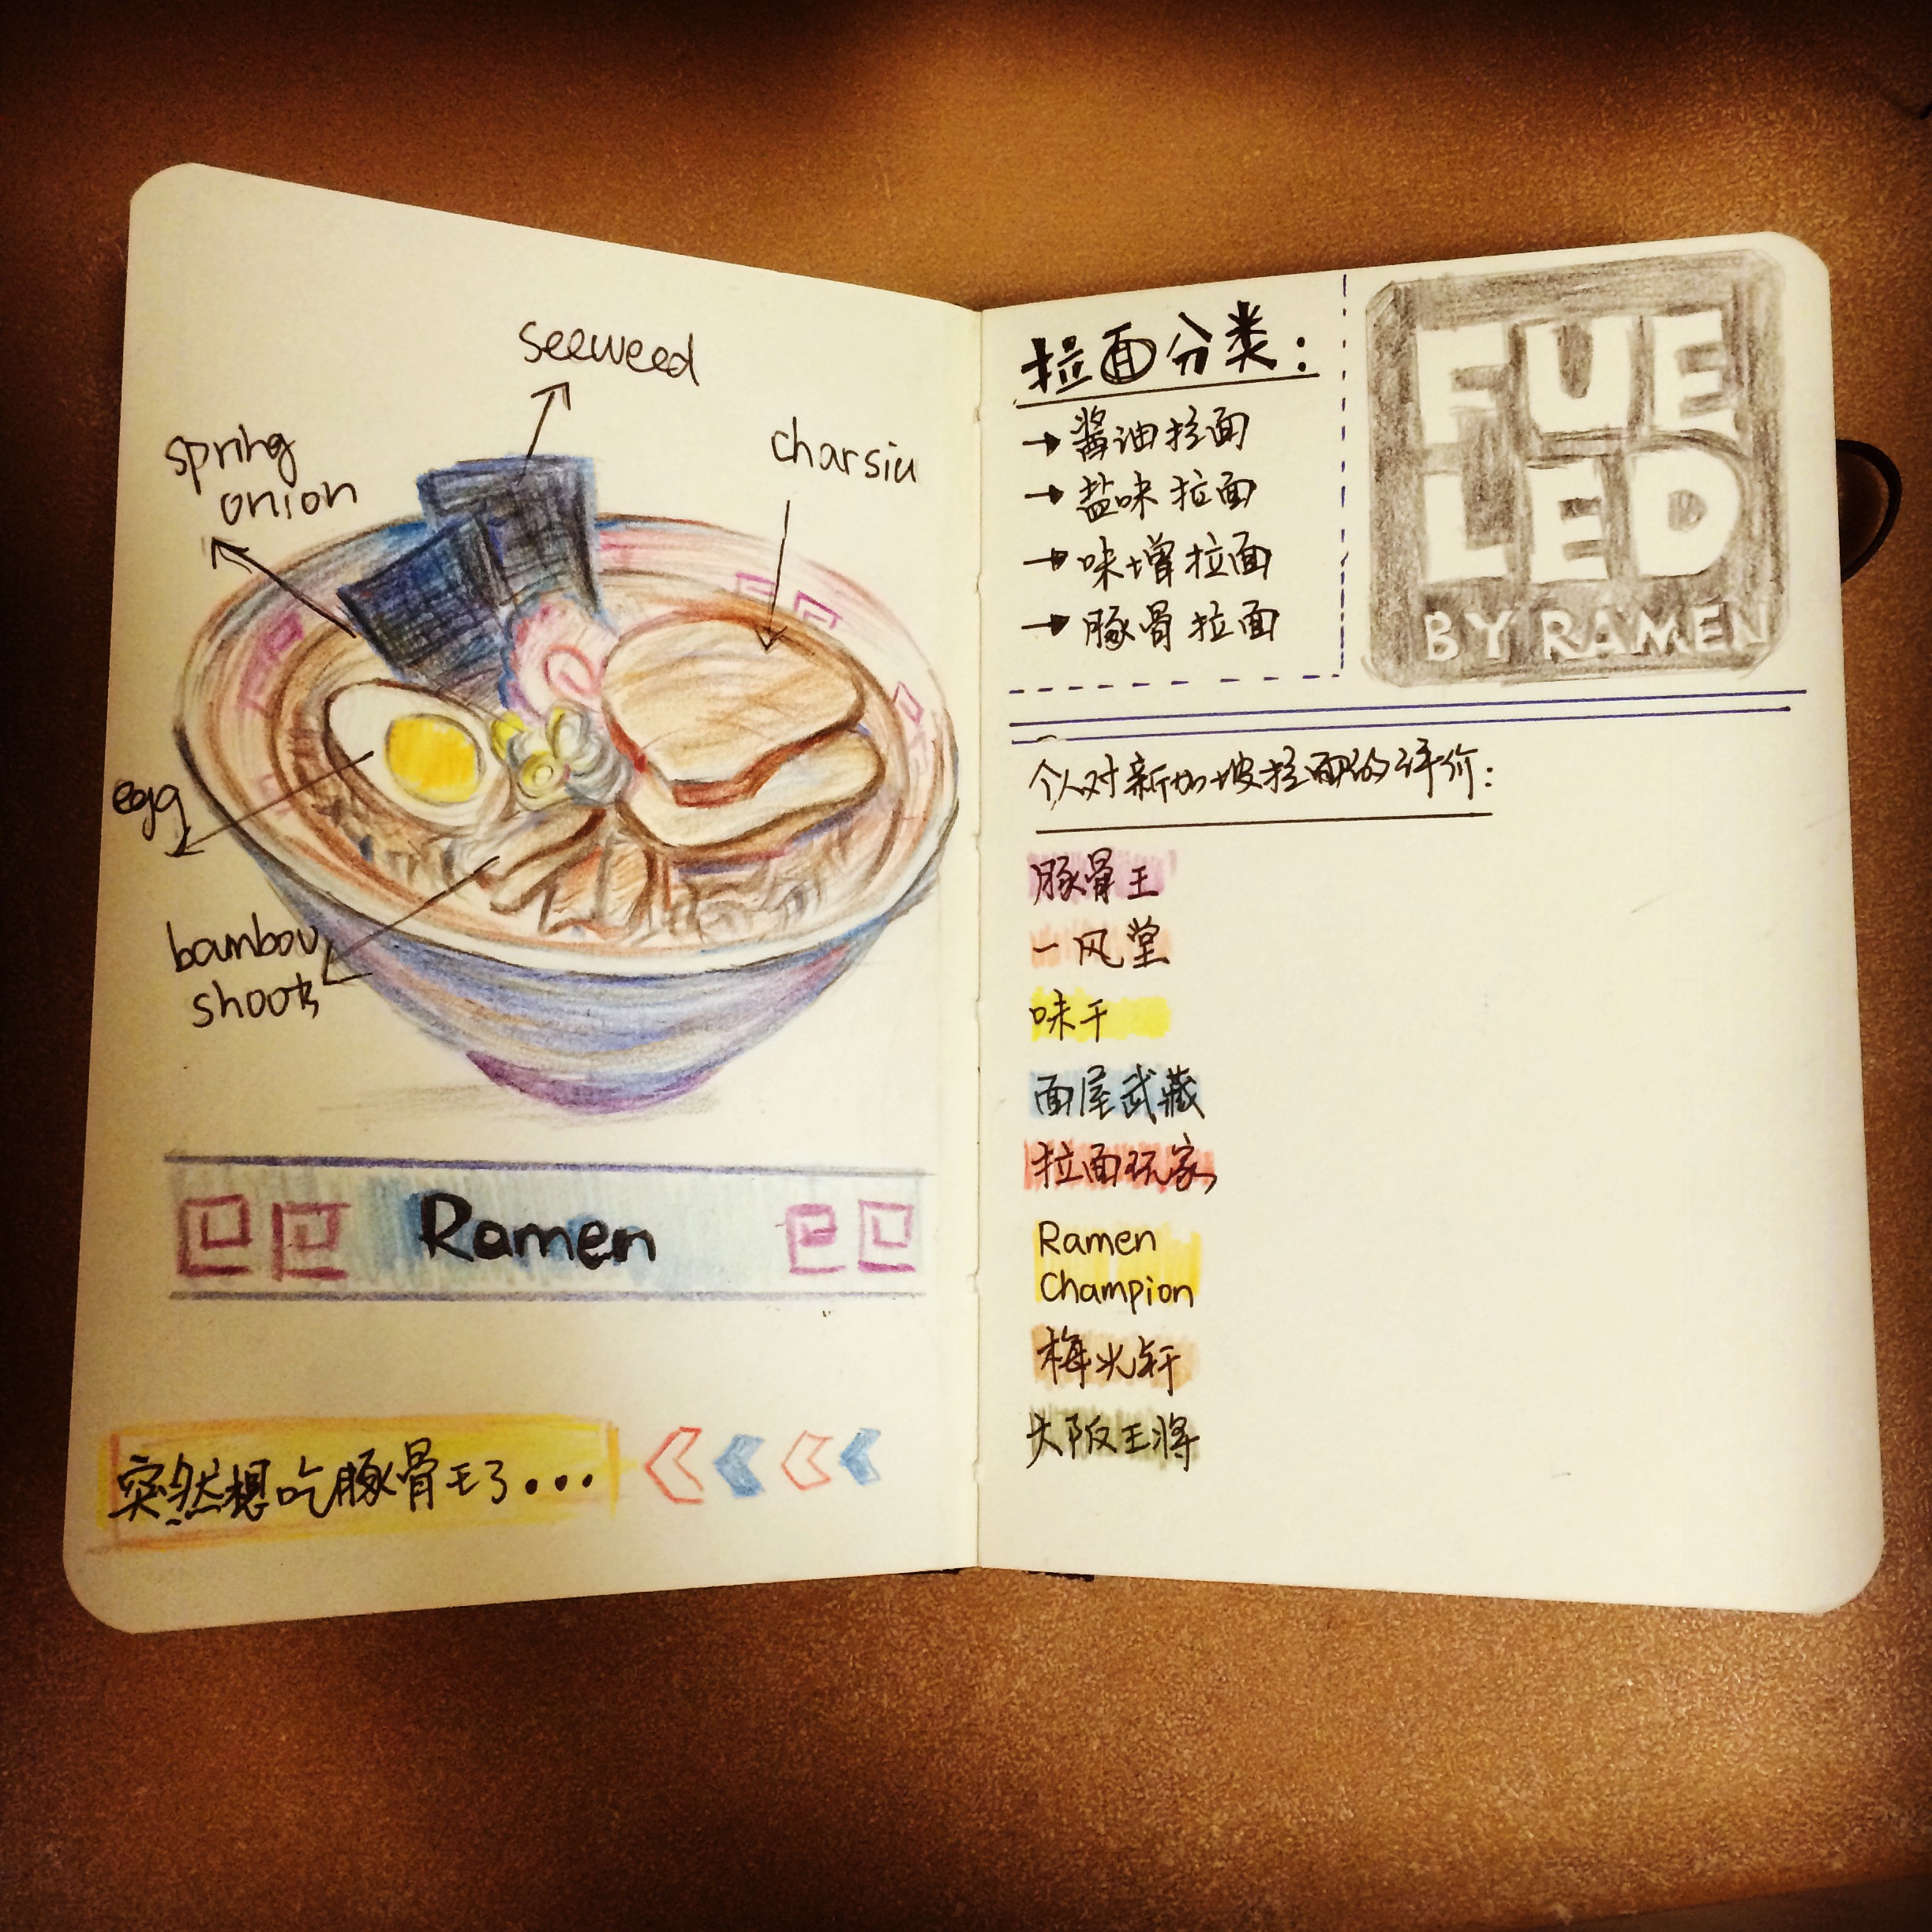 seeweed
spring
onion
charsiu
egg
bambou
shoots
Ramen
突然想吃豚骨王了...
拉面分类:
→ 酱油拉面
→ 盐味拉面
→ 味增拉面
→ 豚骨拉面
FUE
LED
BY RAMEN
个人对新加坡拉面的评价:
豚骨王
一风堂
味千
面屋武藏
拉面玩家
Ramen
Champion
梅光轩
大阪王将